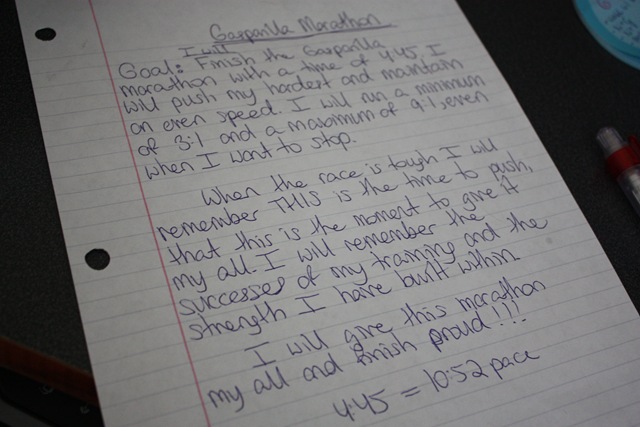 Gasparilla Marathon
I will
Goal: Finish the Gasparilla
marathon with a time of 4:45. I
will push my hardest and maintain
an even speed. I will run a minimum
of 3:1 and a maximum of 9:1, even
when I want to stop.
When the race is tough I will
remember THIS is the time to push,
that this is the moment to give it
my all. I will remember the
successes of my training and the
strength I have built within
I will give this marathon
my all and finish proud!!!
4:45 = 10:52 pace